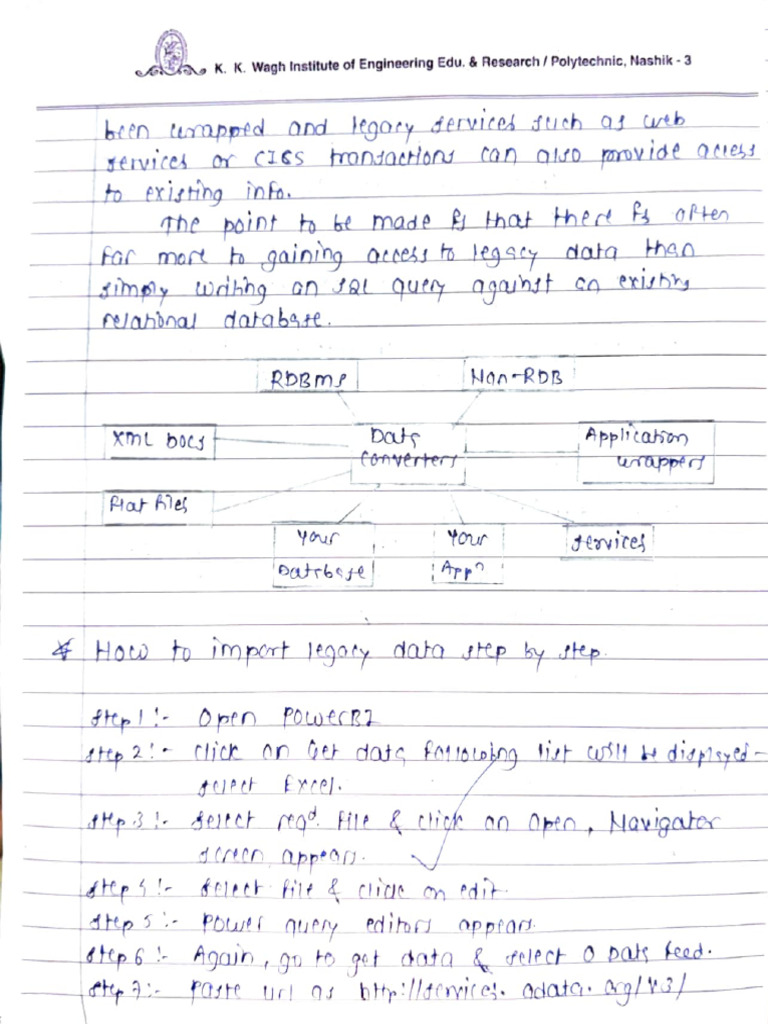 K. K. Wagh Institute of Engineering Edu. & Research / Polytechnic, Nashik - 3
been wrapped and legacy services such as web
services or CICS transactions can also provide access
to existing info.
The point to be made is that there is often
far more to gaining access to legacy data than
simply writing an SQL query against an existing
relational database.
RDBMS Non-RDB
XML Docs Data Application
converters wrappers
flat files
Your Your services
Database Appn
* How to import legacy data step by step.
Step 1 :- Open PowerBI
Step 2 :- click on Get data following list will be displayed -
select Excel.
Step 3 :- Select reqd. file & click on Open, Navigator
screen appears.
Step 4 :- Select file & click on edit.
Step 5 :- Power query editors appears.
Step 6 :- Again, go to get data & select O Data feed.
Step 7 :- Paste url as http://services.odata.org/V3/